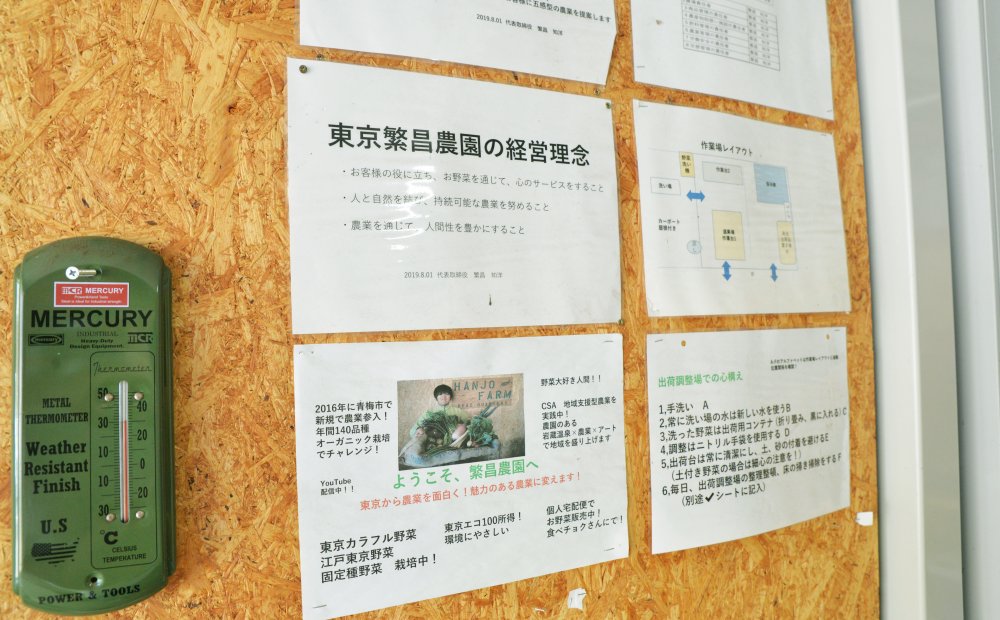 MCR MERCURY
MERCURY
INDUSTRIAL
Heavy-Duty
Design Equipment.
mercury
MCR
METAL
THERMOMETER
Weather
Resistant
Finish
U.S
Thermometer
50
40
30
20
10
10
20
30
°C
CELSIUS
TEMPERATURE
POWER & TOOLS
客様に五感型の農業を提案します
2019.8.01 代表取締役 繁昌 知洋
東京繁昌農園の経営理念
・お客様の役に立ち、お野菜を通じて、心のサービスをすること
・人と自然を結び、持続可能な農業を努めること
・農業を通じて、人間性を豊かにすること
2019.8.01 代表取締役 繁昌 知洋
作業場レイアウト
野菜
洗い
機
作業台2
洗い機
カーポート
屋根付き
作業台1
2016年に青梅市で
新規で農業参入！
年間140品種
オーガニック栽培
でチャレンジ！
YouTube
配信中！！
HANJO
FARM
野菜大好き人間！！
CSA 地域支援型農業を
実践中！
農園のある
岩蔵温泉×農業×アート
で地域を盛り上げます
ようこそ、繁昌農園へ
東京から農業を面白く！魅力のある農業に変えます！
東京カラフル野菜
江戸東京野菜
固定種野菜 栽培中！
東京エコ100所得！
環境にやさしい
個人宅配便で
お野菜販売中！
食べチョクさんにて！
出荷調整場での心構え
1,手洗い A
2,常に洗い場の水は新しい水を使うB
3,洗った野菜は出荷用コンテナ（折り畳み、黒に入れる）C
4,調整はニトリル手袋を使用する D
5,出荷台は常に清潔にし、土、砂の付着を避けるE
（土付き野菜の場合は細心の注意を！）
6,毎日、出荷調整場の整理整頓、床の掃き掃除をするF
（別途✔シートに記入）